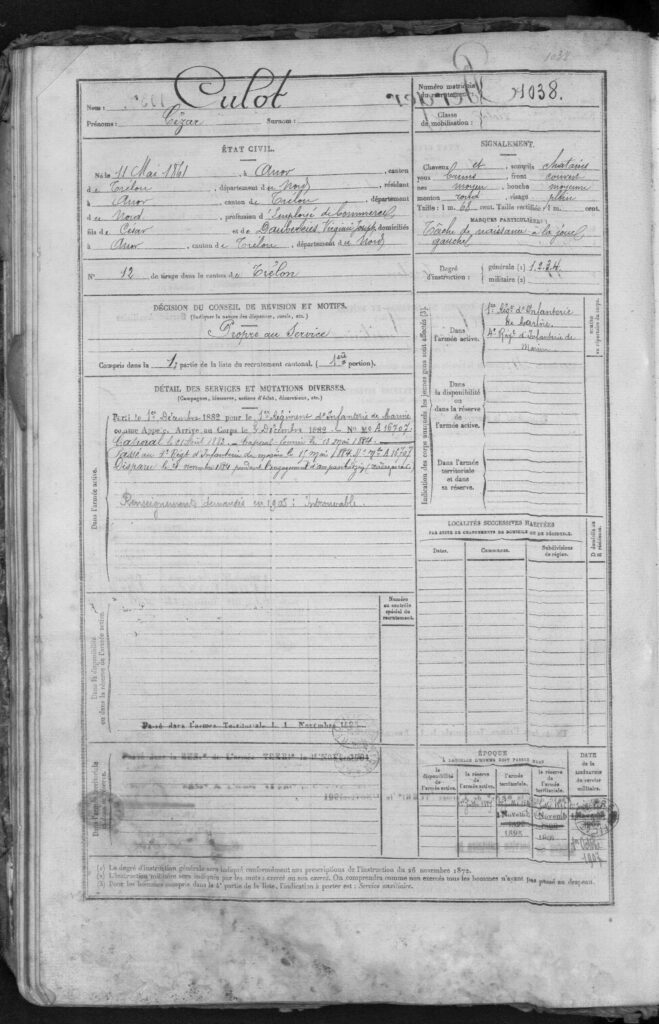 1038
Nom : Culot
Prénoms : Cézar Surnom :
Numéro matricule du recrutement : 1038.
Classe de mobilisation :
ÉTAT CIVIL.
Né le 11 Mai 1861, à Anor, canton
de Trélon, département du Nord, résidant
à Anor, canton de Trélon, département
du Nord, profession d'Employé de Commerce,
fils de César et de Daubercies, Virginie Joseph, domiciliés
à Anor, canton de Trélon, département du Nord
N° 12 de tirage dans le canton de Trélon
SIGNALEMENT.
Cheveux et sourcils chatains
yeux bruns front couvert
nez moyen bouche moyenne
menton rond visage plein
Taille : 1 m. cent. Taille rectifiée : 1 m. cent.
MARQUES PARTICULIÈRES :
Tâche de naissance à la joue
gauche
Degré d'instruction : générale (1) 1.2.3.4.
militaire (2)
DÉCISION DU CONSEIL DE RÉVISION ET MOTIFS.
(Indiquer la nature des dispenses, sursis, etc.)
Propre au Service
Compris dans la 1re partie de la liste du recrutement cantonal. ( 1re portion).
DÉTAIL DES SERVICES ET MUTATIONS DIVERSES.
(Campagnes, blessures, actions d'éclat, décorations, etc.)
Dans l'armée active.
Parti le 1er Décembre 1882 pour le 1er Régiment d'Infanterie de Marine
comme Appelé. Arrivé au Corps le 3 Décembre 1882. N° Mle A 16707.
Caporal le 21 Août 1883. Caporal fourrier le 13 Mai 1884.
Passé au 4e Régt d'Infanterie de marine le 17 mai 1884 N° Mle A 16707
Disparu le novembre 1884 pendant l'engagement
Renseignements demandés en 1905 : Introuvable.
Indication des corps auxquels les jeunes gens sont affectés (3).
Dans l'armée active.
1er Régt d'Infanterie
de Marine
4e Régt d'Infanterie de
Marine
Dans la disponibilité ou dans la réserve de l'armée active.
Dans l'armée territoriale et dans sa réserve.
LOCALITÉS SUCCESSIVES HABITÉES
PAR SUITE DE CHANGEMENTS DE DOMICILE OU DE RÉSIDENCE.
Dates. Communes. Subdivisions de région. D domicile ou R résidence.
Dans la disponibilité ou dans la réserve de l'armée active.
Numéro au contrôle spécial du recrutement.
Passé dans l'armée Territoriale le 1 Novembre
Passé dans la RÉS.ve de l'armée TERR.le le
ÉPOQUE
À LAQUELLE L'HOMME DOIT PASSER DANS
la disponibilité de l'armée active.
la réserve de l'armée active.
l'armée territoriale.
la réserve de l'armée territoriale.
DATE de la libération du service militaire.
1 Novemb
1895
1907
(1) Le degré d'instruction générale sera indiqué conformément aux prescriptions de l'Instruction du 26 novembre 1872.
(2) L'instruction militaire sera indiquée par les mots : exercé ou non exercé. On comprendra comme non exercés tous les hommes n'ayant pas passé au drapeau.
(3) Pour les hommes compris dans la 4e partie de la liste, l'indication à porter est : Service auxiliaire.